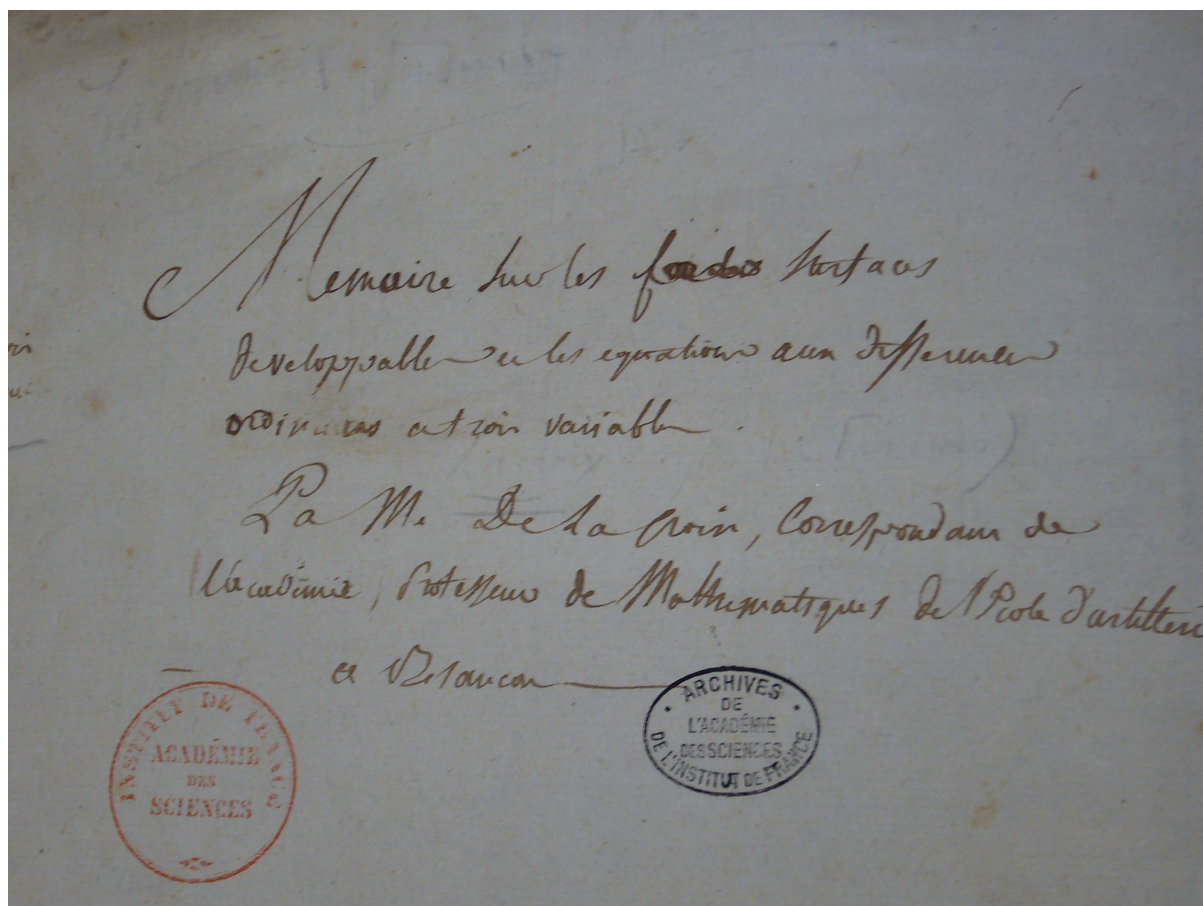 Memoire sur les surfaces
developpables et les equations aux differences
ordinaires a trois variables.
Pa M. De La Croix, Correspondant de
l'académie, Professeur de Mathematiques de l'Ecole d'artillerie
a Besancon
INSTITUT DE FRANCE
ACADÉMIE
DES
SCIENCES
ARCHIVES
DE
L'ACADÉMIE
DES SCIENCES
DE L'INSTITUT DE FRANCE